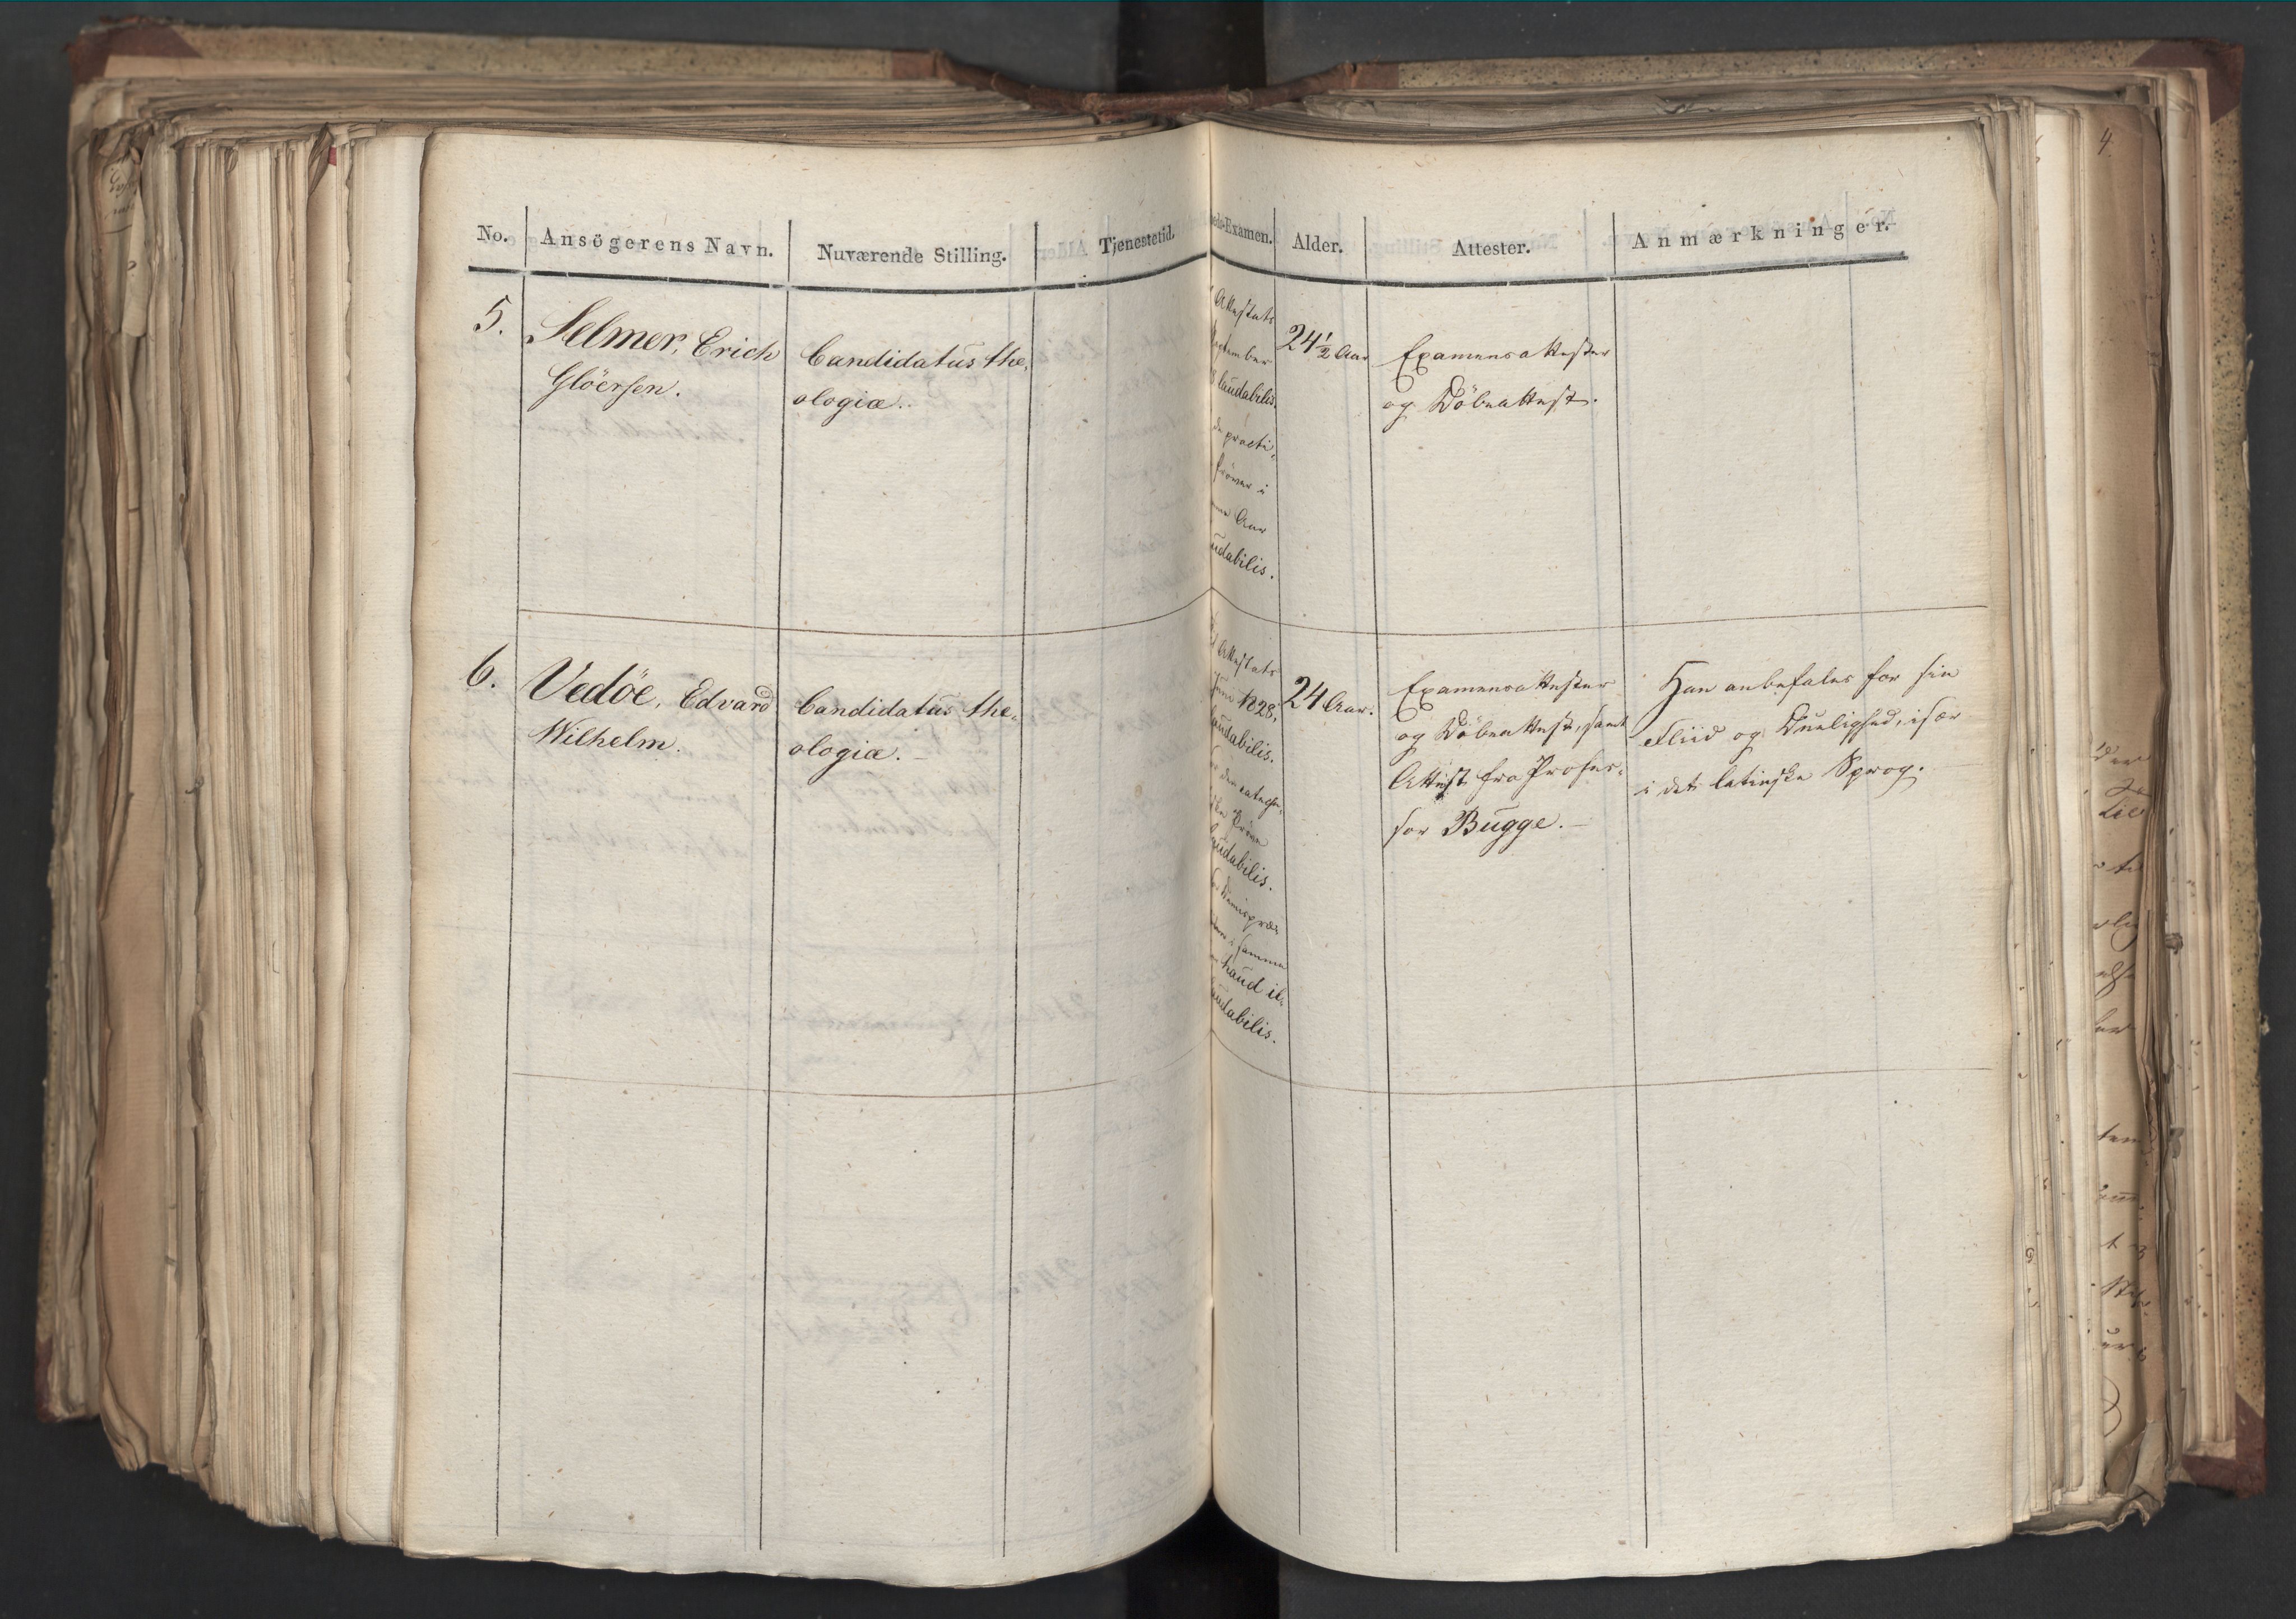 No.
Ansögerens Navn.
Nuværende Stilling.
Tjenestetid.
Examen.
Alder.
Attester.
Anmærkninger.
5.
Selmer, Erich
Glöersen.
Candidatus the-
ologiæ.
Attestats
laudabilis.
practi-
i
Aar
udabilis.
24 1/2 Aar
Examensattester
og Döbeattest.
6.
Vedöe, Edvard
Wilhelm.
Candidatus the-
ologiæ. –
Attestats
Juni 1828,
laudabilis.
den cateche-
Pröve
laudabilis.
Dimispræ-
i samme
haud il-
laudabilis.
24 Aar.
Examensattester
og Döbeattest, samt
Attest fra Profes-
sor Bugge. –
Han anbefales for sin
Fliid og Duelighed, især
i det latinske Sprog.
4.